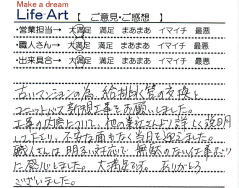 Make a dream
Life Art 【 ご意見・ご感想 】
・営業担当→ 大満足 満足 まあまあ イマイチ 最悪
・職人さん→ 大満足 満足 まあまあ イマイチ 最悪
・出来具合→ 大満足 満足 まあまあ イマイチ 最悪
古いマンションの為、給排水管の交換と
ユニットバス新規工事をお願いしました。
工事の内容について、他の業社さんより詳しく説明
して下さり、不安な面もなく当日を迎えました。
職人さんは明るい対応で、無駄のない仕事ぶり
に感心しました。大満足です。ありがとう
ございました。